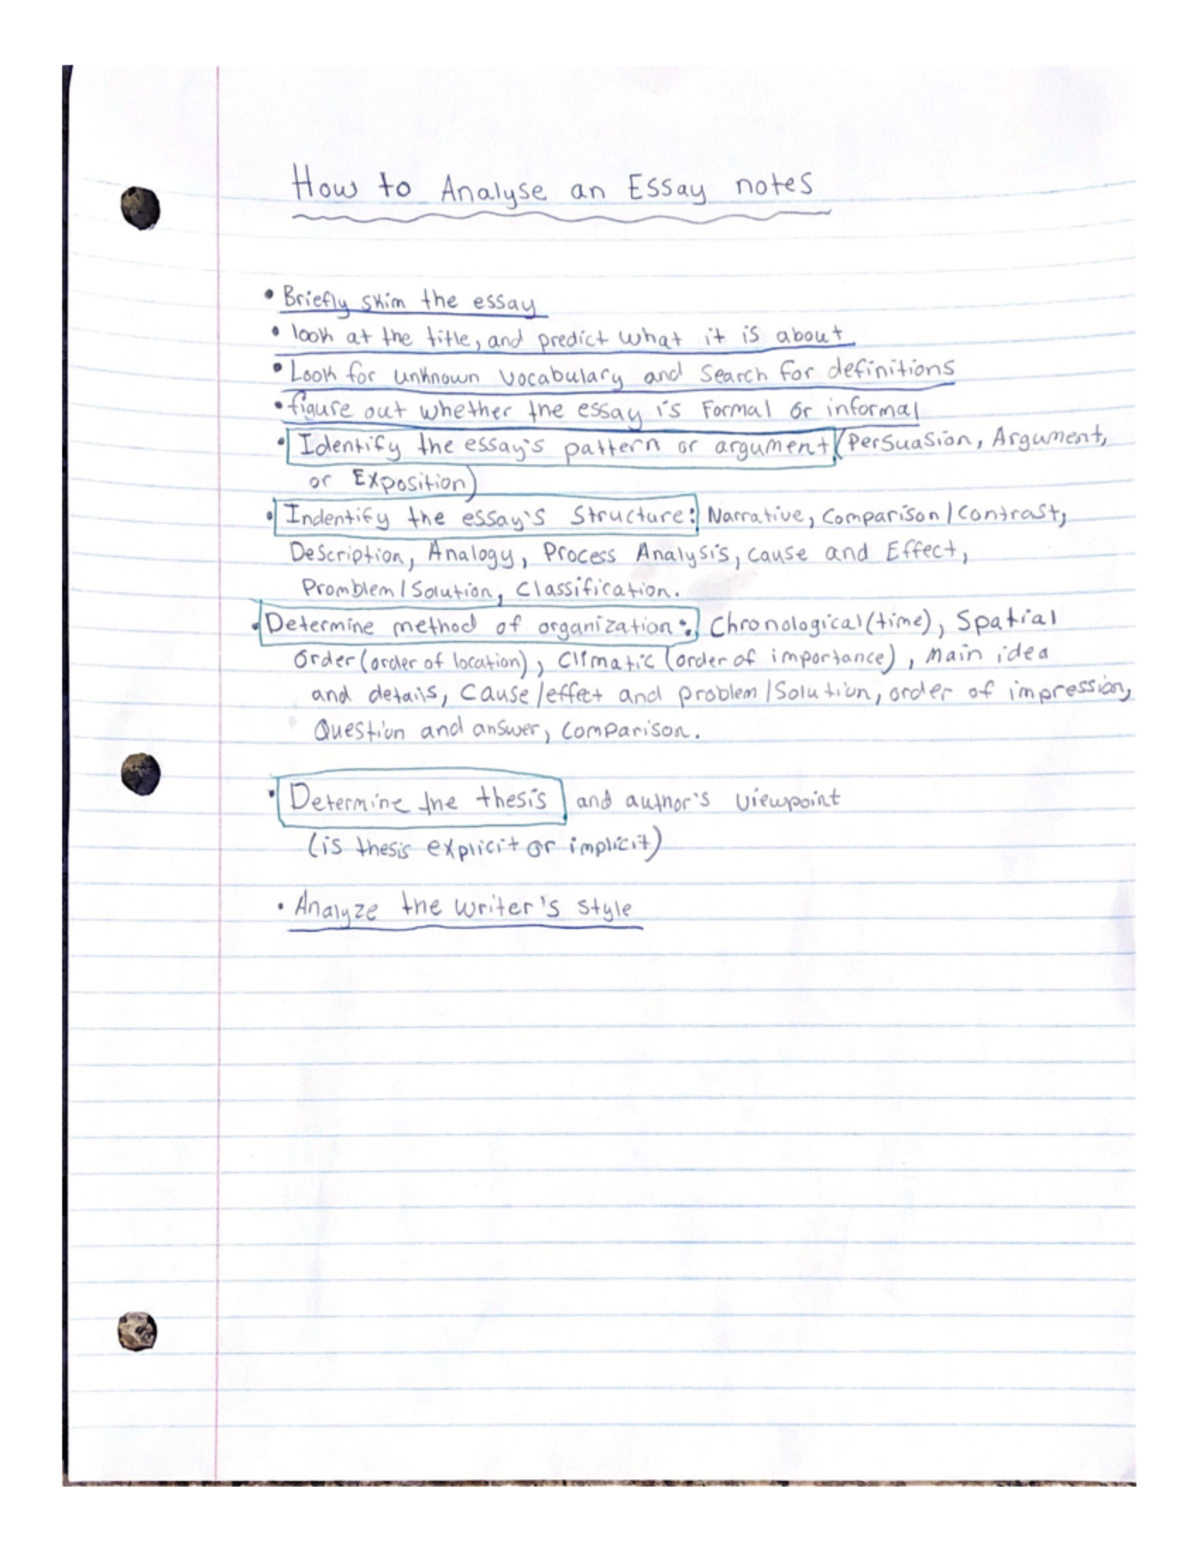 How to Analyse an Essay notes
• Briefly skim the essay
• look at the title, and predict what it is about
• Look for unknown vocabulary and Search for definitions
• figure out whether the essay is Formal or informal
• Identify the essay's pattern or argument (Persuasion, Argument,
or Exposition)
• Indentify the essay's Structure: Narrative, Comparison/Contrast,
Description, Analogy, Process Analysis, cause and Effect,
Promblem/Solution, Classification.
• Determine method of organization: Chronological (time), Spatial
Order (order of location), Climatic (order of importance), Main idea
and details, Cause/effect and problem/Solution, order of impression,
Question and answer, Comparison.
• Determine the thesis and author's viewpoint
(is thesis explicit or implicit)
• Analyze the writer's style